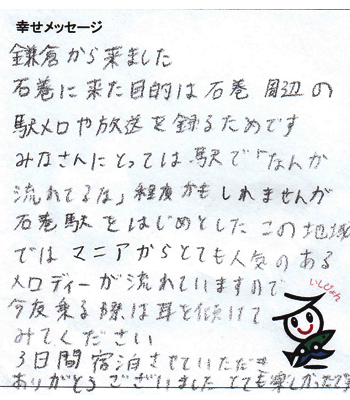 幸せメッセージ
鎌倉から来ました
石巻に来た目的は石巻周辺の
駅メロや放送を録るためです
みなさんにとっては駅で「なんか
流れてるな」程度かもしれませんが
石巻駅をはじめとしたこの地域
ではマニアからとても人気のある
メロディーが流れていますので
今度乗る際は耳を傾けて
みてください
3日間宿泊させていただき
ありがとうございました とても楽しかったです
いしぴょん